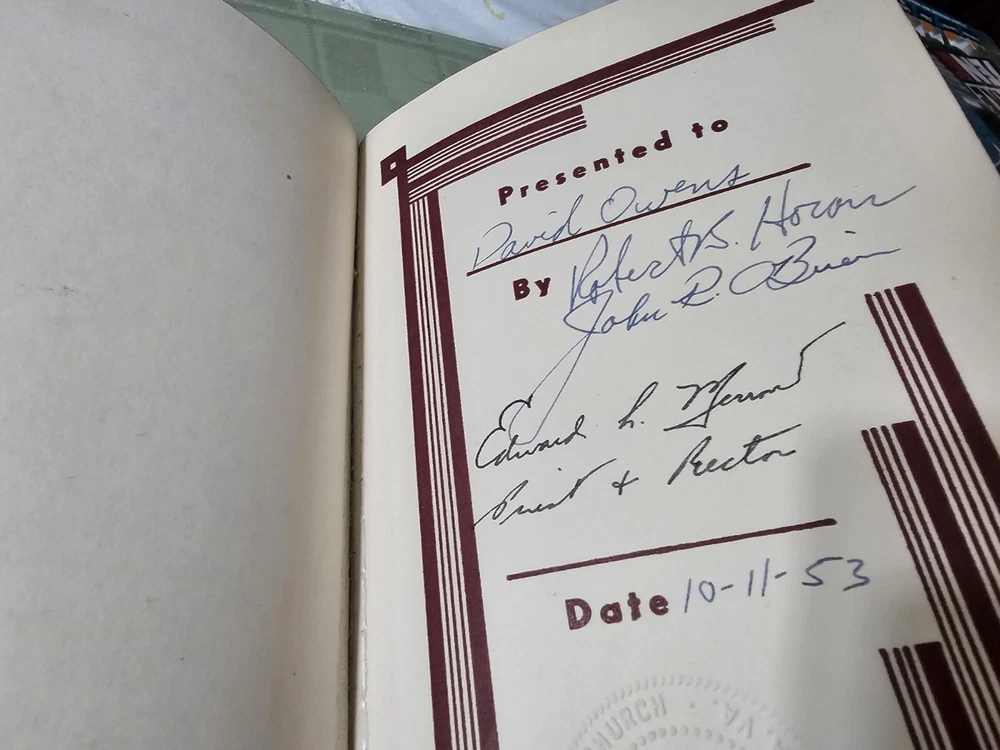 Presented to
David Owens
By Robert B. Horom
John R. O'Brien
Edward L. Merrow
Priest & Rector
Date 10-11-53
CHURCH · VA